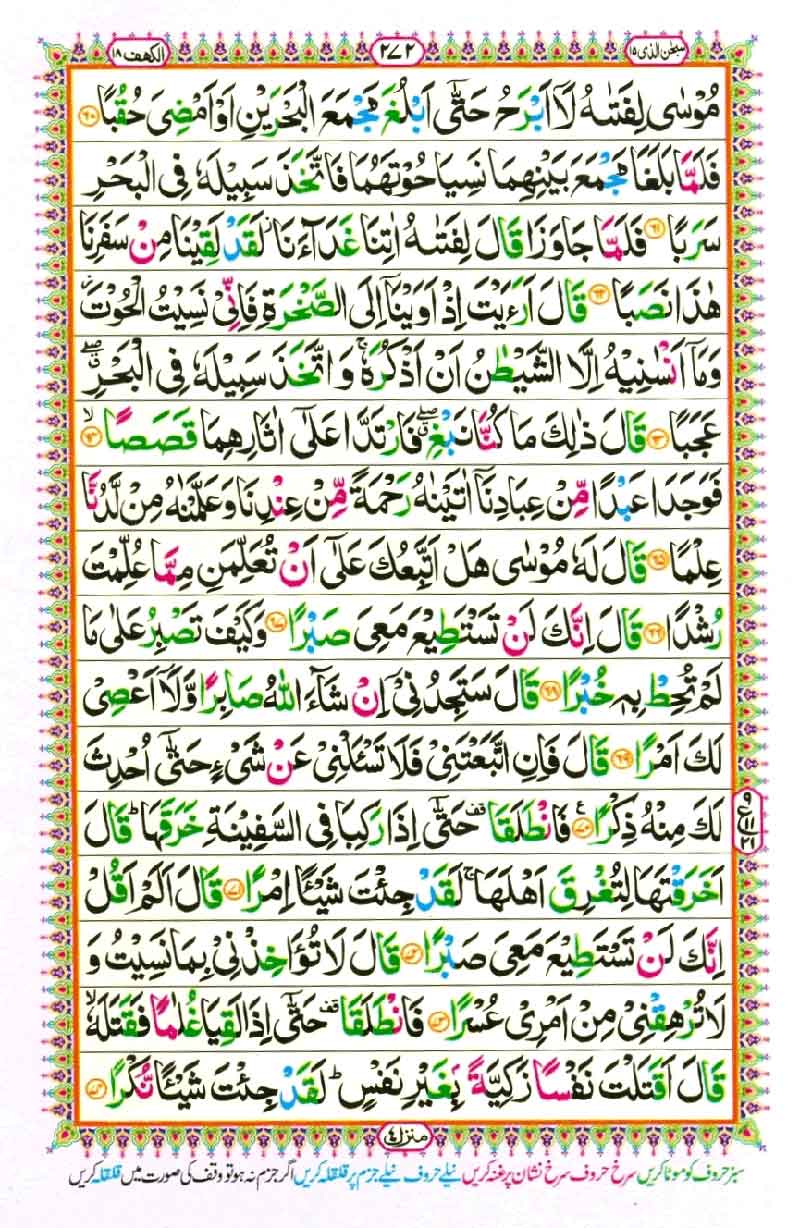 سبحٰن الذی ۱۵ ۲۷۲ الکهف ۱۸
مُوۡسٰی لِفَتٰىهُ لَاۤ اَبۡرَحُ حَتّٰۤی اَبۡلُغَ مَجۡمَعَ الۡبَحۡرَیۡنِ اَوۡ اَمۡضِیَ حُقُبًا ﴿۶۰﴾
فَلَمَّا بَلَغَا مَجۡمَعَ بَیۡنِهِمَا نَسِیَا حُوۡتَهُمَا فَاتَّخَذَ سَبِیۡلَهٗ فِی الۡبَحۡرِ
سَرَبًا ﴿۶۱﴾ فَلَمَّا جَاوَزَا قَالَ لِفَتٰىهُ اٰتِنَا غَدَآءَنَا ۫ لَقَدۡ لَقِیۡنَا مِنۡ سَفَرِنَا
هٰذَا نَصَبًا ﴿۶۲﴾ قَالَ اَرَءَیۡتَ اِذۡ اَوَیۡنَاۤ اِلَی الصَّخۡرَةِ فَاِنِّیۡ نَسِیۡتُ الۡحُوۡتَ ۫
وَ مَاۤ اَنۡسٰنِیۡهُ اِلَّا الشَّیۡطٰنُ اَنۡ اَذۡکُرَهٗ ۚ وَ اتَّخَذَ سَبِیۡلَهٗ فِی الۡبَحۡرِ ٭ۖ
عَجَبًا ﴿۶۳﴾ قَالَ ذٰلِکَ مَا کُنَّا نَبۡغِ ٭ۖ فَارۡتَدَّا عَلٰۤی اٰثَارِهِمَا قَصَصًا ﴿ۙ۶۴﴾
فَوَجَدَا عَبۡدًا مِّنۡ عِبَادِنَاۤ اٰتَیۡنٰهُ رَحۡمَةً مِّنۡ عِنۡدِنَا وَ عَلَّمۡنٰهُ مِنۡ لَّدُنَّا
عِلۡمًا ﴿۶۵﴾ قَالَ لَهٗ مُوۡسٰی هَلۡ اَتَّبِعُکَ عَلٰۤی اَنۡ تُعَلِّمَنِ مِمَّا عُلِّمۡتَ
رُشۡدًا ﴿۶۶﴾ قَالَ اِنَّکَ لَنۡ تَسۡتَطِیۡعَ مَعِیَ صَبۡرًا ﴿۶۷﴾ وَ کَیۡفَ تَصۡبِرُ عَلٰی مَا
لَمۡ تُحِطۡ بِهٖ خُبۡرًا ﴿۶۸﴾ قَالَ سَتَجِدُنِیۡۤ اِنۡ شَآءَ اللّٰهُ صَابِرًا وَّ لَاۤ اَعۡصِیۡ
لَکَ اَمۡرًا ﴿۶۹﴾ قَالَ فَاِنِ اتَّبَعۡتَنِیۡ فَلَا تَسۡـَٔلۡنِیۡ عَنۡ شَیۡءٍ حَتّٰۤی اُحۡدِثَ
لَکَ مِنۡهُ ذِکۡرًا ﴿٪۷۰﴾ فَانۡطَلَقَا ٝ حَتّٰۤی اِذَا رَکِبَا فِی السَّفِیۡنَةِ خَرَقَهَا ؕ قَالَ
اَخَرَقۡتَهَا لِتُغۡرِقَ اَهۡلَهَا ۚ لَقَدۡ جِئۡتَ شَیۡئًا اِمۡرًا ﴿۷۱﴾ قَالَ اَلَمۡ اَقُلۡ
اِنَّکَ لَنۡ تَسۡتَطِیۡعَ مَعِیَ صَبۡرًا ﴿۷۲﴾ قَالَ لَا تُؤَاخِذۡنِیۡ بِمَا نَسِیۡتُ وَ
لَا تُرۡهِقۡنِیۡ مِنۡ اَمۡرِیۡ عُسۡرًا ﴿۷۳﴾ فَانۡطَلَقَا ٝ حَتّٰۤی اِذَا لَقِیَا غُلٰمًا فَقَتَلَهٗ ۙ
قَالَ اَقَتَلۡتَ نَفۡسًا زَکِیَّةًۢ بِغَیۡرِ نَفۡسٍ ؕ لَقَدۡ جِئۡتَ شَیۡئًا نُّکۡرًا ﴿۷۴﴾
منزل ۴
سبز حروف کو موٹا کریں سرخ حروف سرخ نشان پر غنہ کریں نیلے حروف نیلے جزم پر قلقلہ کریں اگر جزم نہ ہو تو وقف کی صورت میں قلقلہ کریں